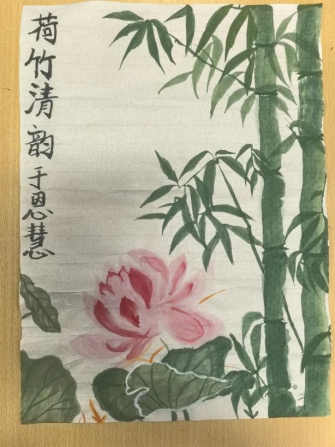 荷竹清韵于恩慧